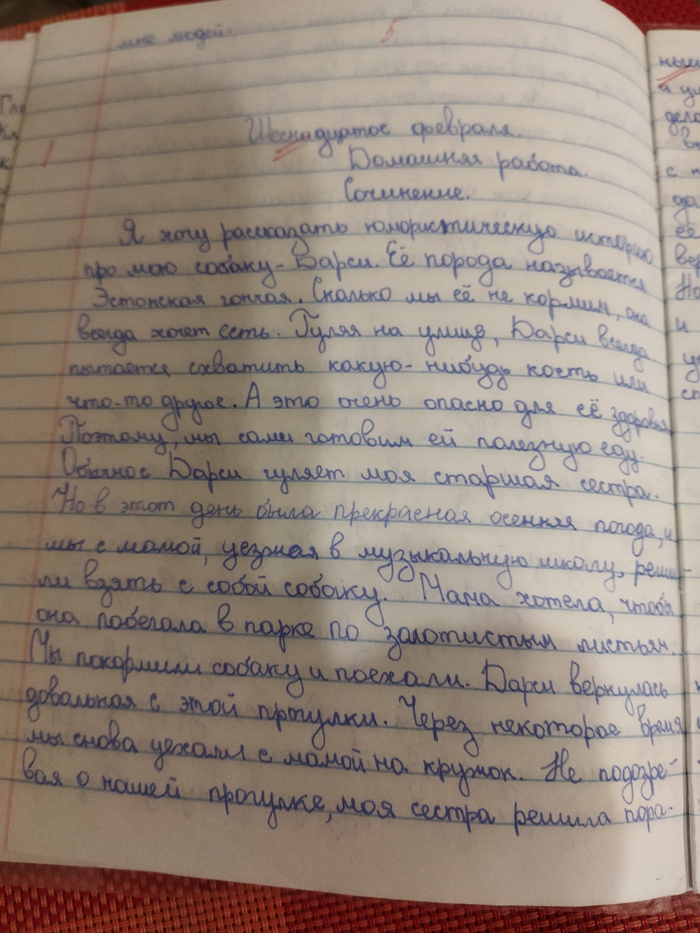 мне людей.
5
Шеснадцатое февраля.
Домашняя работа.
Сочинение.
Я хочу рассказать юмористическую историю
про мою собаку - Дарси. Её порода называется
Эстонская гончая. Сколько мы её не кормим, она
всегда хочет есть. Гуляя на улице, Дарси всегда
пытается схватить какую-нибудь кость или
что-то другое. А это очень опасно для её здоровья.
Поэтому, мы сами готовим ей полезную еду.
Обычное Дарси гуляет моя старшая сестра.
Но в этот день была прекрасная осенняя погода, и
мы с мамой, уезжая в музыкальную школу, реши-
ли взять с собой собаку. Мама хотела, чтобы
она побегала в парке по золотистым листьям.
Мы покормили собаку и поехали. Дарси вернулась
довольная с этой прогулки. Через некоторое время
мы снова уехали с мамой на кружок. Не подозре-
вая о нашей прогулке, моя сестра решила пора-